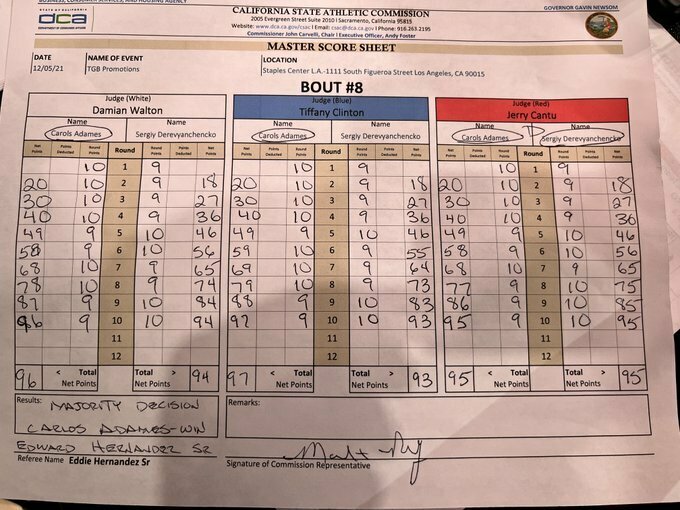 BUSINESS, CONSUMER SERVICES, AND HOUSING AGENCY
GOVERNOR GAVIN NEWSOM
STATE OF CALIFORNIA
dca
DEPARTMENT OF CONSUMER AFFAIRS
CALIFORNIA STATE ATHLETIC COMMISSION
2005 Evergreen Street Suite 2010 | Sacramento, California 95815
Website: www.dca.ca.gov/csac | Email: csac@dca.ca.gov I Phone: 916.263.2195
Commissioner John Carvelli, Chair I Executive Officer, Andy Foster
MASTER SCORE SHEET
DATE NAME OF EVENT LOCATION
12/05/21 TGB Promotions Staples Center L.A.-1111 South Figueroa Street Los Angeles, CA 90015
BOUT #8
Judge (White) Judge (Blue) Judge (Red)
Damian Walton Tiffany Clinton Jerry Cantu
Name Name Name Name Name D Name
Carols Adames Sergiy Derevyanchencko Carols Adames Sergiy Derevyanchencko Carols Adames Sergiy Derevyanchencko
Net Points Points Deducted Round Points Round Round Points Points Deducted Net Points Net Points Points Deducted Round Points Round Round Points Points Deducted Net Points Net Points Points Deducted Round Points Round Round Points Points Deducted Net Points
10 1 9 10 1 9 10 1 9
20 10 2 9 18 20 10 2 9 18 20 10 2 9 18
30 10 3 9 27 30 10 3 9 27 30 10 3 9 27
40 10 4 9 36 40 10 4 9 36 40 10 4 9 36
49 9 5 10 46 49 9 5 10 46 49 9 5 10 46
58 9 6 10 56 59 10 6 9 55 58 9 6 10 56
68 10 7 9 65 69 10 7 9 64 68 10 7 9 65
78 10 8 9 74 79 10 8 9 73 77 9 8 10 75
87 9 9 10 84 88 9 9 10 83 86 9 9 10 85
96 9 10 10 94 97 9 10 10 93 95 9 10 10 95
11 11 11
12 12 12
96 < Total > 94 97 < Total > 93 95 < Total > 95
Net Points Net Points Net Points Net Points Net Points Net Points
Results: MAJORITY DECISION
CARLOS ADAMES-WIN
EDWARD HERNANDEZ SR
Referee Name Eddie Hernandez Sr
Remarks:
Signature of Commission Representative